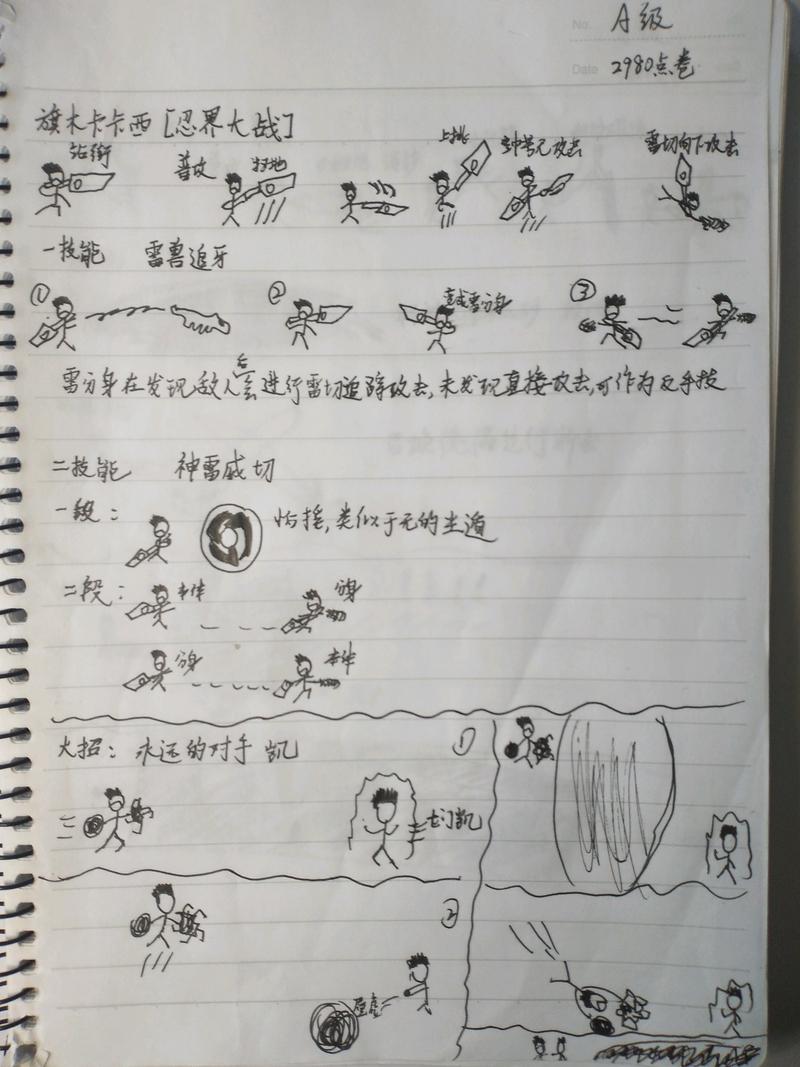 No. A级
Date 2980点卷
旗木卡卡西[忍界大战]
站街
普攻
扫地
上挑
雷切向下攻去
一技能 雷兽追牙
①
②
雷分身
③
雷分身在发现敌人后会进行雷切追踪攻去,未发现直接攻去,可作为反手技
二技能 神雷威切
一段:
类似于无的尘遁
二段:
本体
分身
分身
本体
大招: 永远的对手 凯
①
七门凯
②